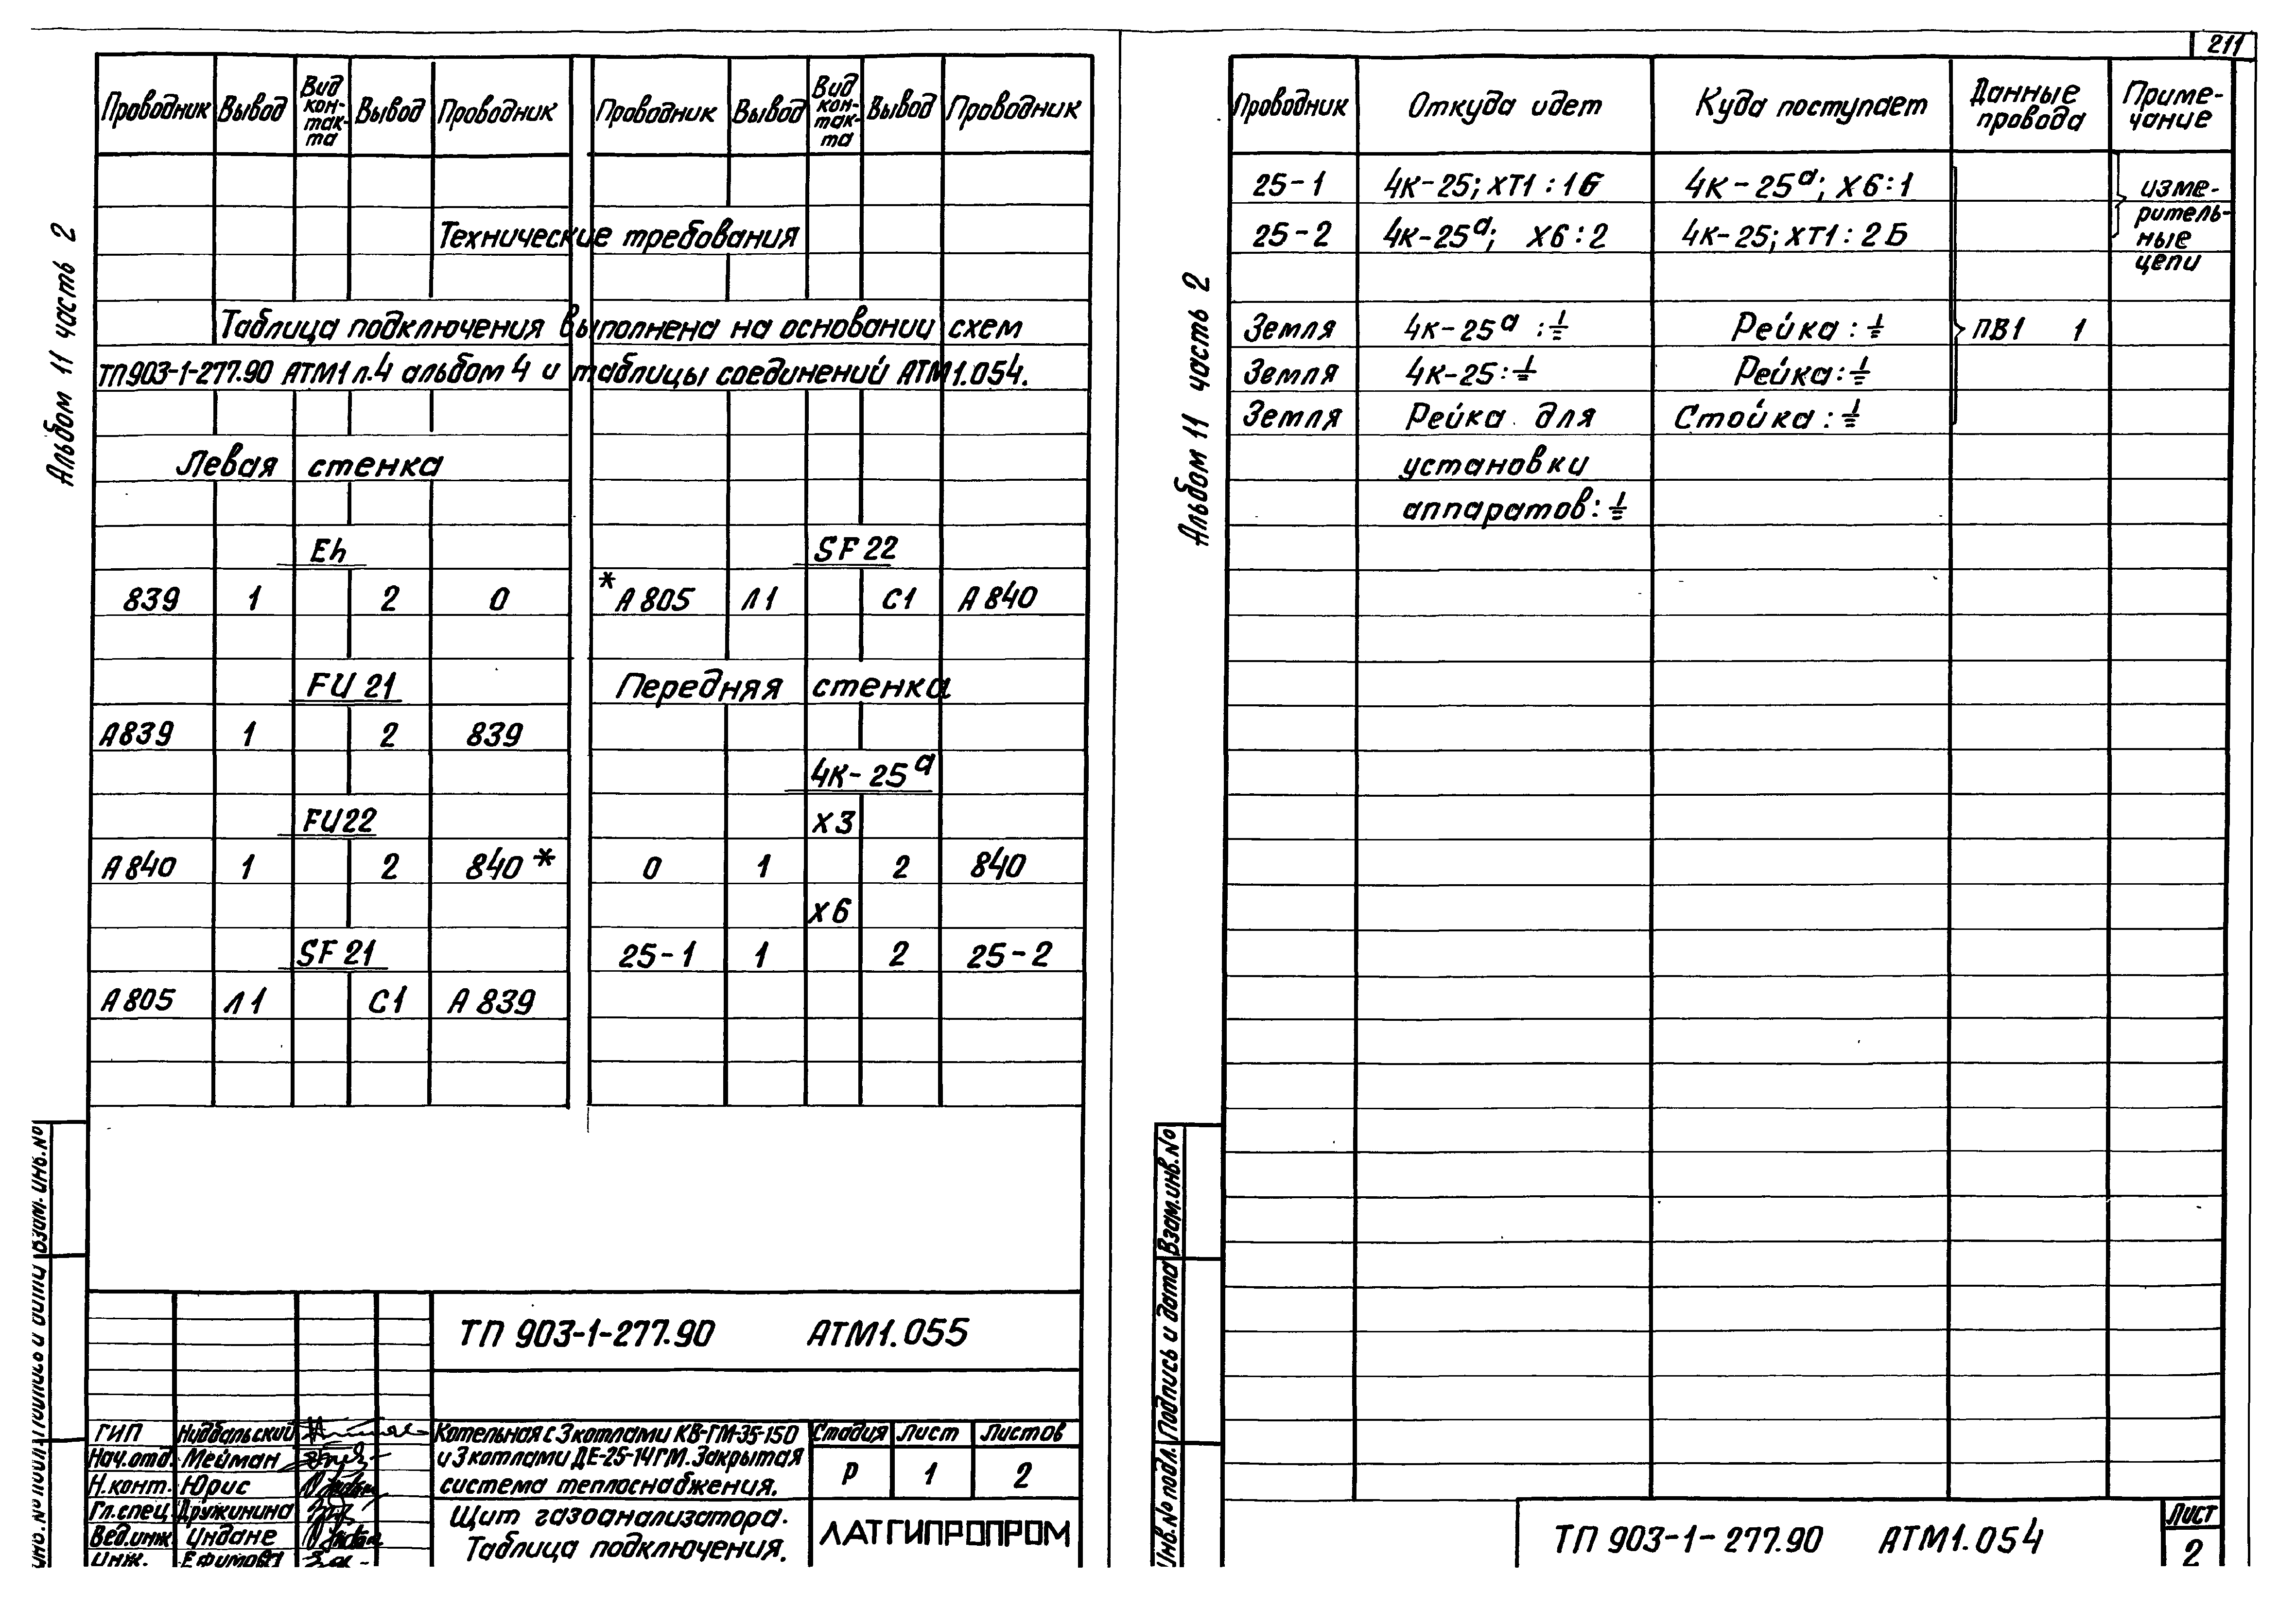 Альбом 11 часть 2
Проводник Вывод Вид кон- так- та Вывод Проводник Проводник Вывод Вид кон- так- та Вывод Проводник
Технические требования
Таблица подключения выполнена на основании схем
ТП903-1-277.90 АТМ1 л.4 альбом 4 и таблицы соединений АТМ1.054.
Левая стенка
Eh SF 22
839 1 2 0 *А805 Л1 С1 А840
FU 21 Передняя стенка
А839 1 2 839
4К-25ᵃ
FU22 Х3
А840 1 2 840* 0 1 2 840
Х6
SF 21 25-1 1 2 25-2
А805 Л1 С1 А839
Взам. инв.№
ТП 903-1-277.90 АТМ1.055
ГИП Нидбальский
Нач.отд. Мейман
Н.конт. Юрис
Гл.спец. Дружинина
Вед.инж. Индане
Инж.
Котельная с 3 котлами КВ-ГМ-35-150
и 3 котлами ДЕ-25-14ГМ. Закрытая
система теплоснабжения.
Стадия Лист Листов
Р 1 2
Щит газоанализатора.
Таблица подключения.
ЛАТГИПРОПРОМ
211
Альбом 11 часть 2
Проводник Откуда идет Куда поступает Данные провода Приме- чание
25-1 4К-25; ХТ1:1Б 4К-25ᵃ; Х6:1 изме-
ритель-
25-2 4К-25ᵃ; Х6:2 4К-25; ХТ1:2Б ные
цепи
Земля 4К-25ᵃ :⏚ Рейка:⏚ ПВ1 1
Земля 4К-25:⏚ Рейка:⏚
Земля Рейка для Стойка:⏚
установки
аппаратов:⏚
Взам.инв.№
Подпись и дата
Инв.№ подл.
ТП 903-1-277.90 АТМ1.054
Лист
2